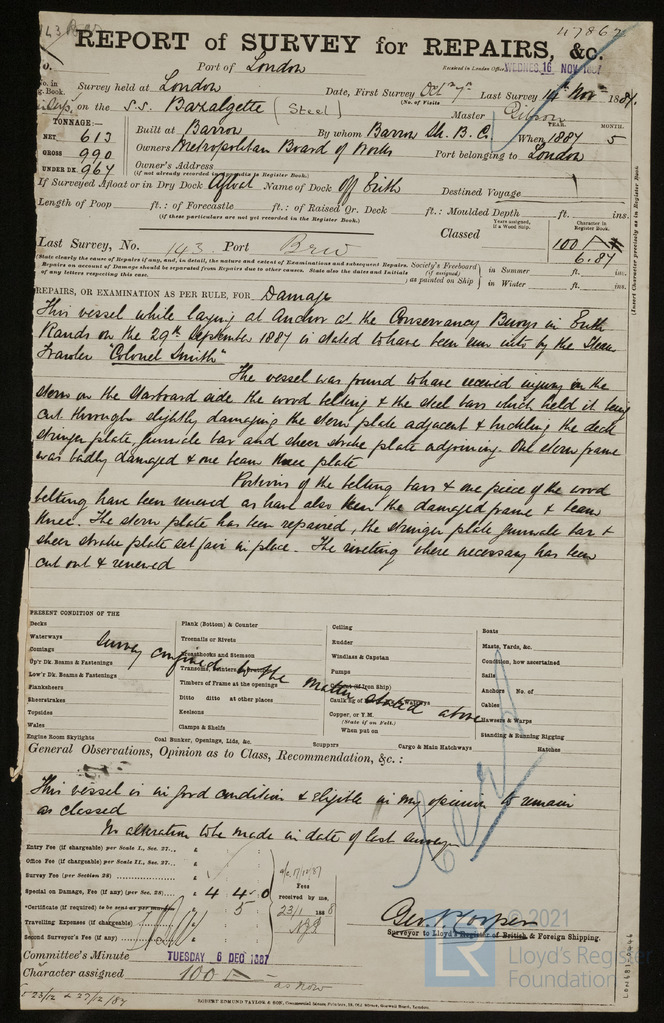 47862
REPORT of SURVEY for REPAIRS, &c.
Port of London
Received in London Office WEDNES. 16 NOV 1887
No. in Reg. Book.
Survey held at London
Date, First Survey Oct 7th Last Survey 14th Nov 1887.
(No. of Visits
on the S.S. Bazalgette (Steel)
Master Gibson
TONNAGE:—
NET 613
GROSS 990
UNDER DK. 967
Built at Barrow By whom Barrow Sh. B. Co. When 1887 5
YEAR. MONTH.
Owners Metropolitan Board of Works Port belonging to London
Owner's Address
(if not already recorded in Appendix to Register Book.)
If Surveyed Afloat or in Dry Dock Afloat Name of Dock Off Erith Destined Voyage
Length of Poop ft.: of Forecastle ft.: of Raised Qr. Deck ft.: Moulded Depth ft. ins.
(if these particulars are not yet recorded in the Register Book.)
Classed
Years assigned, if a Wood Ship.
Character in Register Book.
100 A
6.87
(Insert Character precisely as in Register Book.)
Last Survey, No. 143 Port Brw
(State clearly the cause of Repairs if any, and, in detail, the nature and extent of Examinations and subsequent Repairs.
Repairs on account of Damage should be separated from Repairs due to other causes. State also the dates and Initials
of any letters respecting this case.
Society's Freeboard (if assigned) as painted on Ship
in Summer ft. ins.
in Winter ft. ins.
REPAIRS, OR EXAMINATION AS PER RULE, FOR Damage
This vessel while laying at Anchor at the Conservancy Buoys in Erith
Rands on the 29th September 1887 is stated to have been run into by the Steam
Trawler "Colonel Smith"
The vessel was found to have received injury in the
stern on the starboard side the wood belting & the steel bars which held it being
cut through slightly damaging the stern plate adjacent & buckling the deck
stringer plate, gunwale bar and sheer strake plate adjoining. One stern frame
was badly damaged & one beam knee plate
Portions of the belting bars & one piece of the wood
belting have been renewed as have also been the damaged frame & beam
knee. The stern plate has been repaired, the stringer plate gunwale bar &
sheer strake plate set fair in place. The riveting where necessary has been
cut out & renewed
PRESENT CONDITION OF THE
Decks
Waterways
Comings
Up'r Dk. Beams & Fastenings
Low'r Dk. Beams & Fastenings
Planksheers
Sheerstrakes
Topsides
Wales
Engine Room Skylights
Plank (Bottom) & Counter
Treenails or Rivets
Breasthooks and Stemson
Transoms, Pointers & Crutches
Timbers of Frame at the openings
Ditto ditto at other places
Keelsons
Clamps & Shelfs
Coal Bunker, Openings, Lids, &c.
Ceiling
Rudder
Windlass & Capstan
Pumps
Cement (if Iron Ship)
Caulking of Waterways
Copper, or Y.M.
(State if on Felt.)
When put on
Scuppers
Cargo & Main Hatchways
Boats
Masts, Yards, &c.
Condition, how ascertained
Sails
Anchors No. of
Cables
Hawsers & Warps
Standing & Running Rigging
Hatches
Survey confined to the matter stated above
General Observations, Opinion as to Class, Recommendation, &c.:
This vessel is in good condition & eligible in my opinion to remain
as classed
No alteration to be made in date of last survey
Entry Fee (if chargeable) per Scale I., Sec. 27... £
Office Fee (if chargeable) per Scale II., Sec. 27... £
Survey Fee (per Section 28) £
Special on Damage, Fee, if any) (per Sec. 28) £ 4 4 0
*Certificate (if required) to be sent as per mail £ 5
Travelling Expenses (if chargeable) £
Second Surveyor's Fee (if any) £
Fees received by me,
23/1 1888
Geo. R. Cooper
Surveyor to Lloyd's Register of British & Foreign Shipping.
Committee's Minute TUESDAY 6 DEC 1887
Character assigned 100 A
as now
23/12 & 27/12/87
ROBERT EDMUND TAYLOR & SON, Commercial Steam Printers, 19, Old Street, Goswell Road, London.
© 2021
LR
Lloyd's Register
Foundation